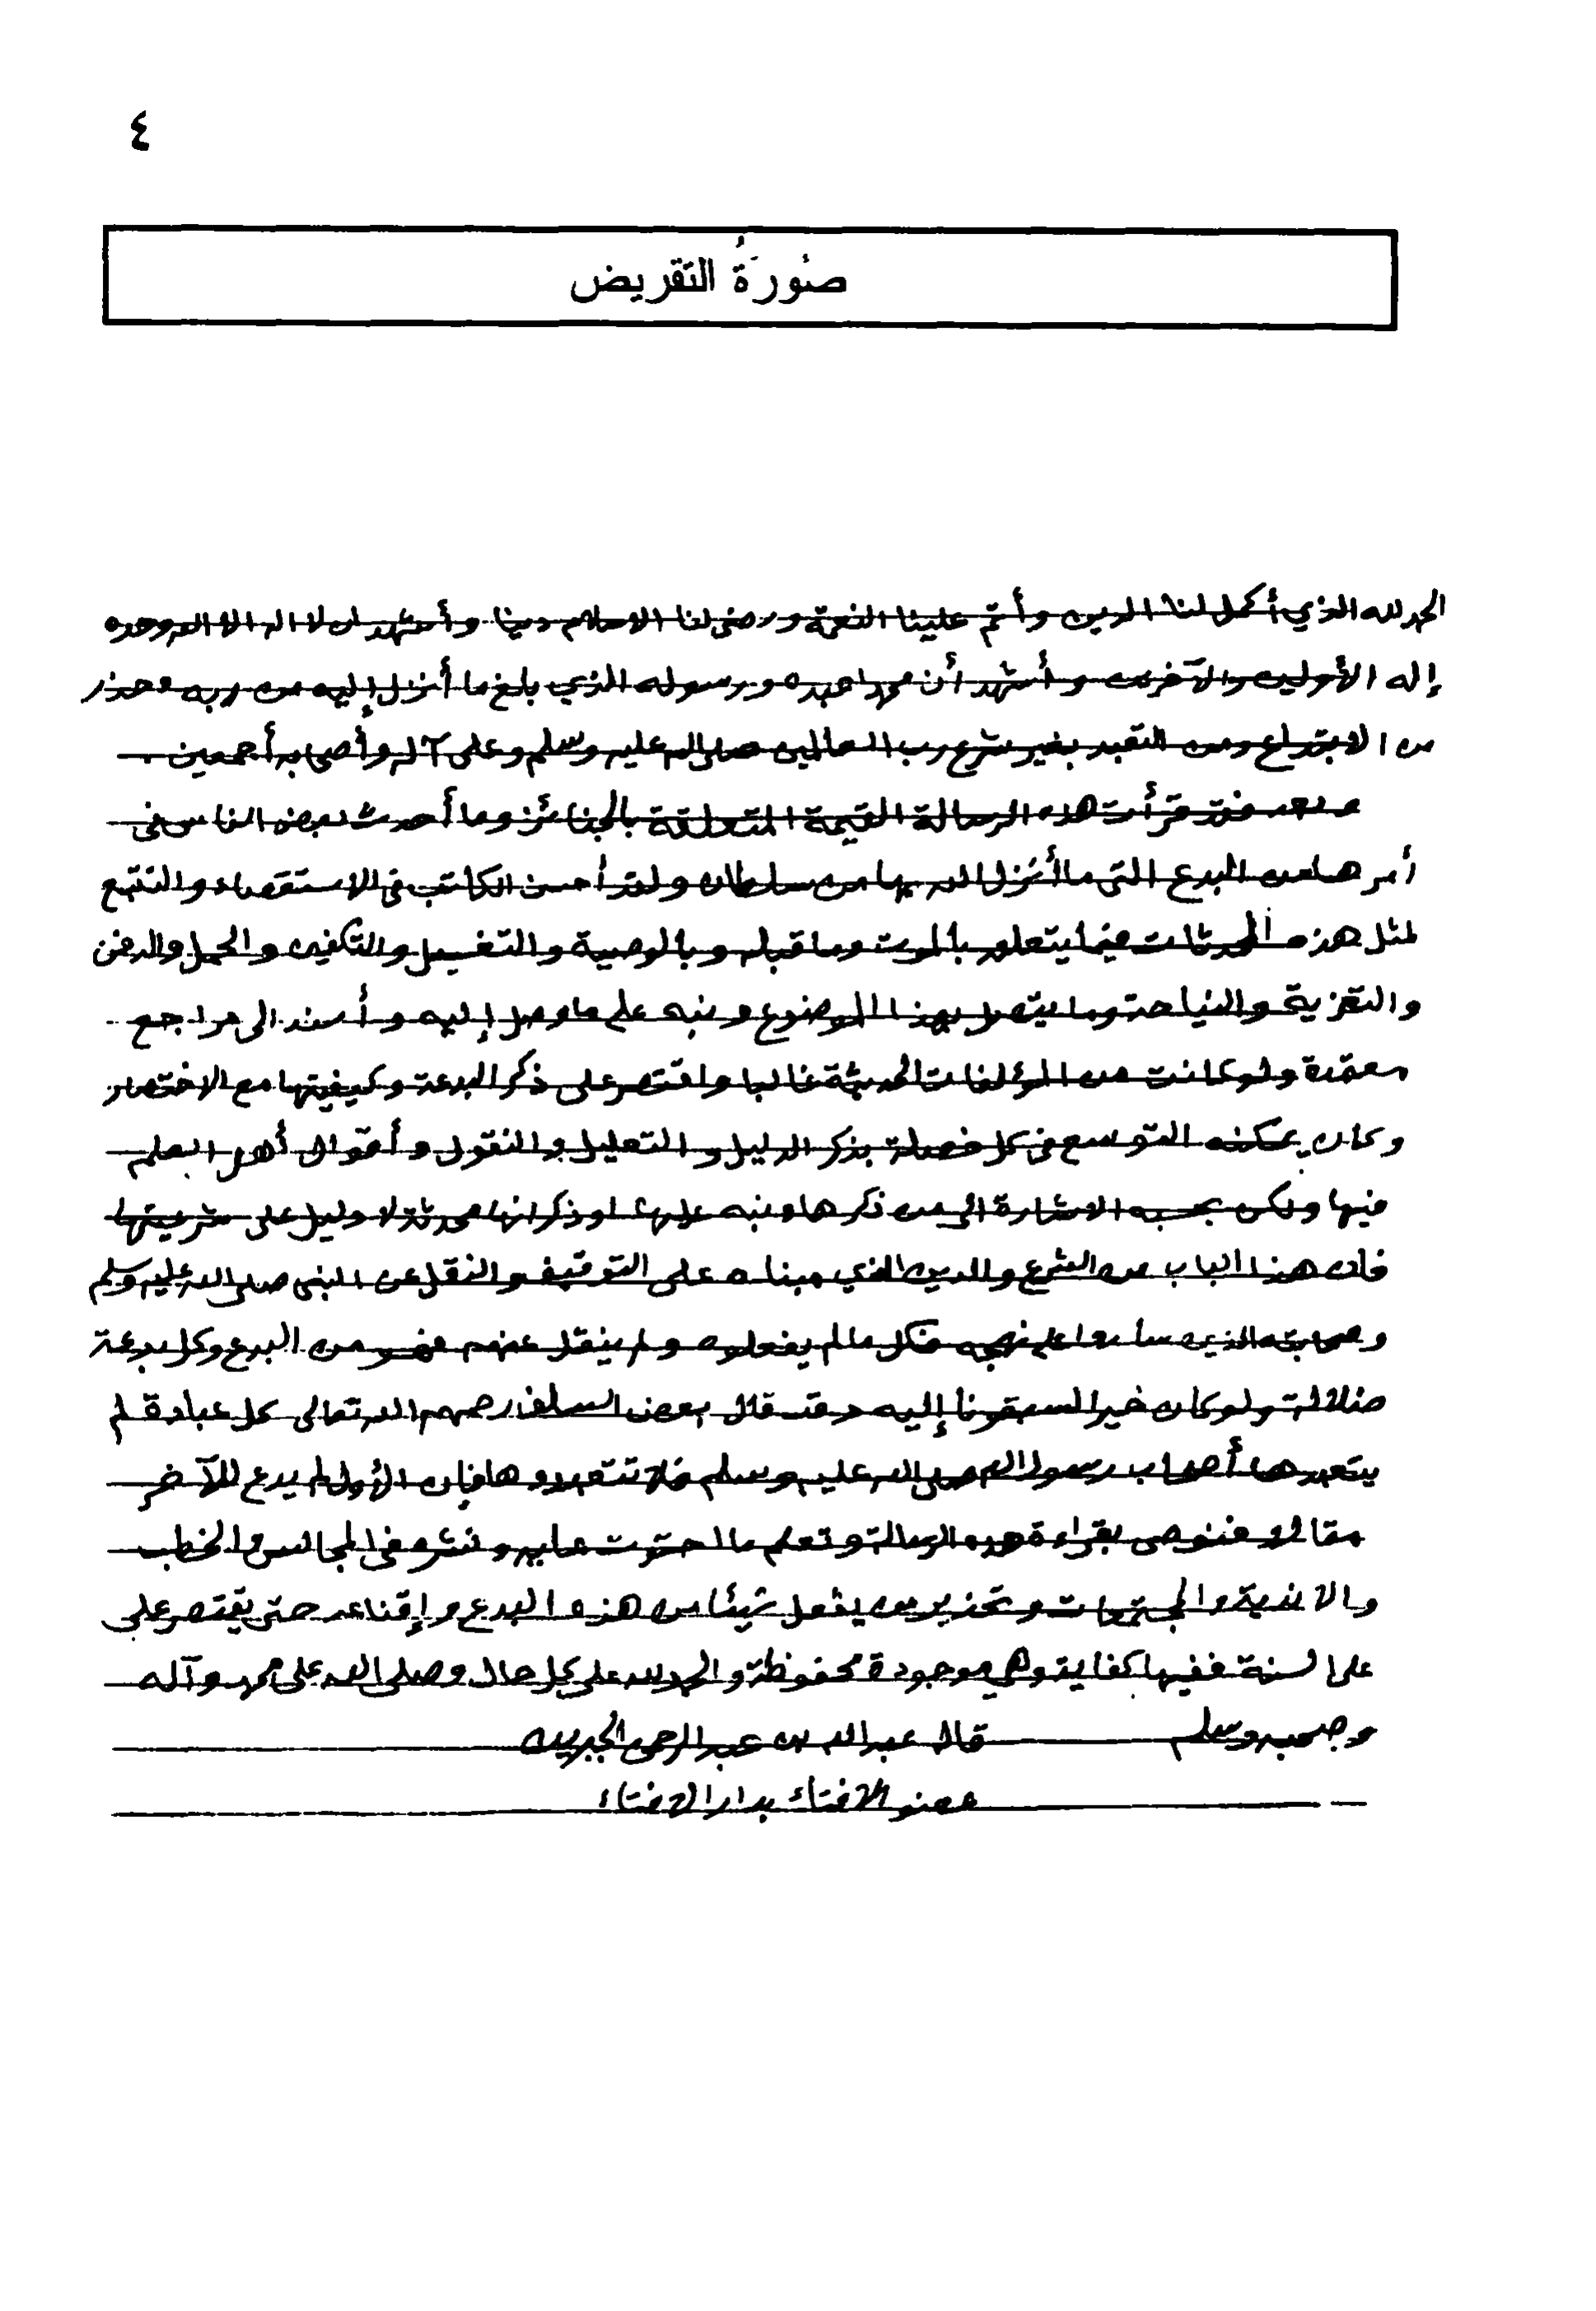 ٤
صُورَةُ التقريض
الحمد لله الذي أكمل لنا الدين وأتم علينا النعمة ورضي لنا الاسلام دينا وأشهد ان لا اله الا الله وحده
إله الأولين والآخرين وأشهد أن محمدا عبده ورسوله الذي بلغ ما أنزل إليه من ربه وحذر
من الابتداع ومن التعبد بغير شرع رب العالمين صلى الله عليه وسلم وعلى آله وأصحابه أجمعين .
وبعد فقد قرأت هذه الرسالة القيمة المتعلقة بالجنائز وما أحدث بعض الناس في
أمرها من البدع التي ما أنزل الله بها من سلطان ولقد أحسن الكاتب في الاستقصاء والتتبع
لمثل هذه المحدثات فيما يتعلق بالموت وما قبله وبالوصية والتغسيل والتكفين والحمل والدفن
والتعزية والنياحة وما يتصل بهذا الموضوع ونبه على ما وصل إليه وأسند الى مراجع
معتمدة ولو كانت من المؤلفات الحديثة غالبا واقتصر على ذكر البدعة وكيفيتها مع الاختصار
وكان يمكنه التوسع في كل خصلة بذكر الدليل والتعليل والنقول وأقوال أهل العلم
فيها ولكن بحسبه الاشارة الى من ذكرها ونبه عليها او ذكر انها محدثة لا دليل على شرعيتها
فإن هذا الباب من الشرع والدين الذي مبناه على التوقيف والنقل عن النبي صلى الله عليه وسلم
وصحابته الذين ساروا على نهجه فكل ما لم يفعلوه ولم ينقل عنهم فهو من البدع وكل بدعة
ضلالة ولو كان خيرا لسبقونا إليه وقد قال بعض السلف رحمهم الله تعالى كل عبادة لم
يتعبدها أصحاب رسول الله صلى الله عليه وسلم فلا تتعبدوها فإن الأول لم يدع للآخر
مقالا فنوصي بقراءة هذه الرسالة وتعلم ما احتوت عليه ونشره في المجالس والخطب
والاندية والمجتمعات وتحذير من يفعل شيئا من هذه البدع وإقناعه حتى يقتصر على
على السنة ففيها كفاية وهي موجودة محفوظة والحمد لله على كل حال وصلى الله على محمد وآله
وصحبه وسلم قاله عبدالله بن عبدالرحمن الجبرين
عضو الافتاء بدار الافتاء